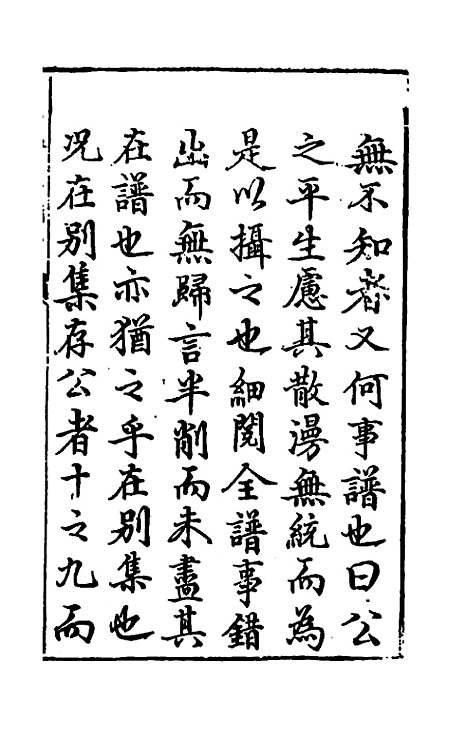 無不知者又何事譜也曰公
之平生慮其散漫無統而為
是以攝之也細閱全譜事錯
出而無歸言半削而未盡其
在譜也亦猶之乎在別集也
况在別集存公者十之九而